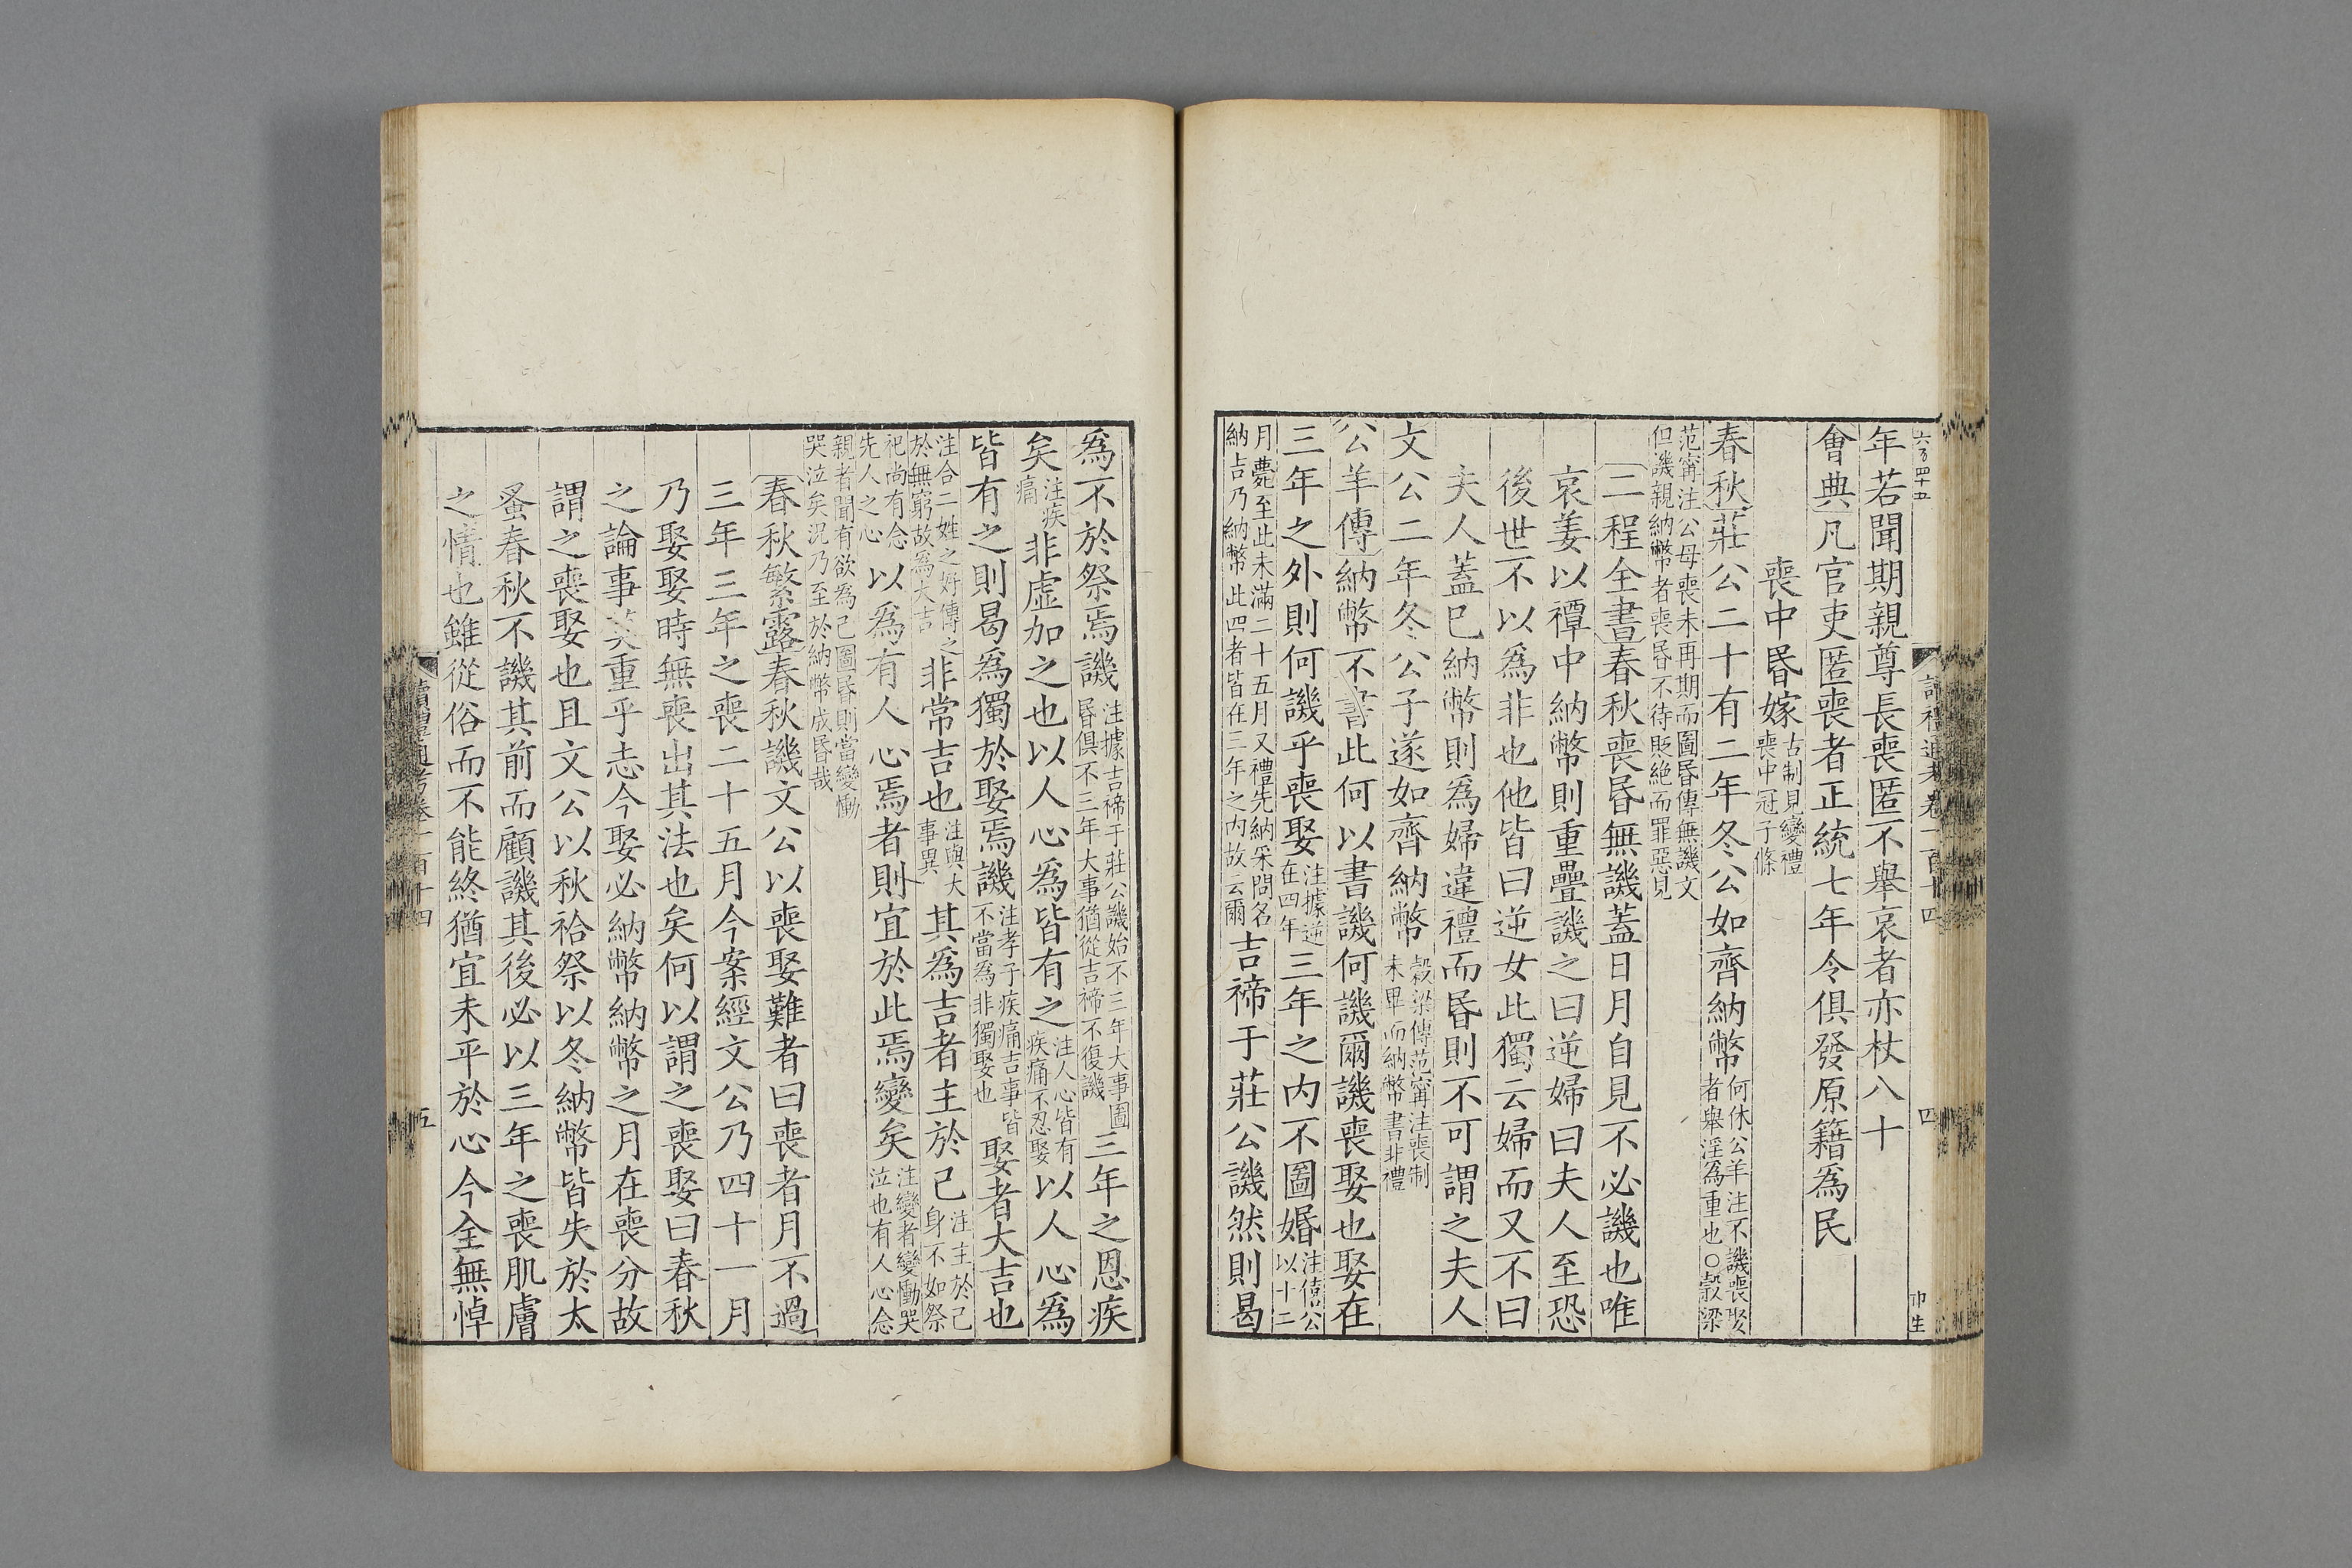 六百四十五
讀禮通考卷一百十四
四
年若聞期親尊長喪匿不舉哀者亦杖八十
會典凡官吏匿喪者正統七年令俱發原籍爲民
喪中昬嫁古制見變禮喪中冠子條
春秋莊公二十有二年冬公如齊納幣何休公羊注不譏喪娶者舉淫爲重也○穀梁
范甯注公母喪未再期而圖昬傳無譏文但譏親納幣者喪昬不待貶絶而罪惡見
二程全書春秋喪昬無譏蓋日月自見不必譏也唯
哀姜以禫中納幣則重疊譏之曰逆婦曰夫人至恐
後世不以爲非也他皆曰逆女此獨云婦而又不曰
夫人蓋已納幣則爲婦違禮而昬則不可謂之夫人
文公二年冬公子遂如齊納幣穀梁傳范甯注喪制未畢而納幣書非禮
公羊傳納幣不書此何以書譏何譏爾譏喪娶也娶在
三年之外則何譏乎喪娶注據逆在四年三年之内不圖婚注僖公以十二
月薨至此未滿二十五月又禮先納采問名納吉乃納幣此四者皆在三年之内故云爾吉禘于莊公譏然則曷
爲不於祭焉譏注據吉禘于莊公譏始不三年大事圖昬俱不三年大事猶從吉禘不復譏三年之恩疾
矣注疾痛非虛加之也以人心爲皆有之注人心皆有疾痛不忍娶以人心爲
皆有之則曷爲獨於娶焉譏注孝子疾痛吉事皆不當爲非獨娶也娶者大吉也
注合二姓之好傳之於無窮故爲大吉非常吉也注與大事異其爲吉者主於己注主於己身不如祭
祀尚有念先人之心以爲有人心焉者則宜於此焉變矣注變者變慟哭泣也有人心念
親者聞有欲爲己圖昬則當變慟哭泣矣況乃至於納幣成昬哉
春秋繁露春秋譏文公以喪娶難者曰喪者月不過
三年三年之喪二十五月今案經文公乃四十一月
乃娶娶時無喪出其法也矣何以謂之喪娶曰春秋
之論事莫重乎志今娶必納幣納幣之月在喪分故
謂之喪娶也且文公以秋祫祭以冬納幣皆失於太
蚤春秋不譏其前而顧譏其後必以三年之喪肌膚
之情也雖從俗而不能終猶宜未平於心今全無悼
讀禮通考卷一百十四
五